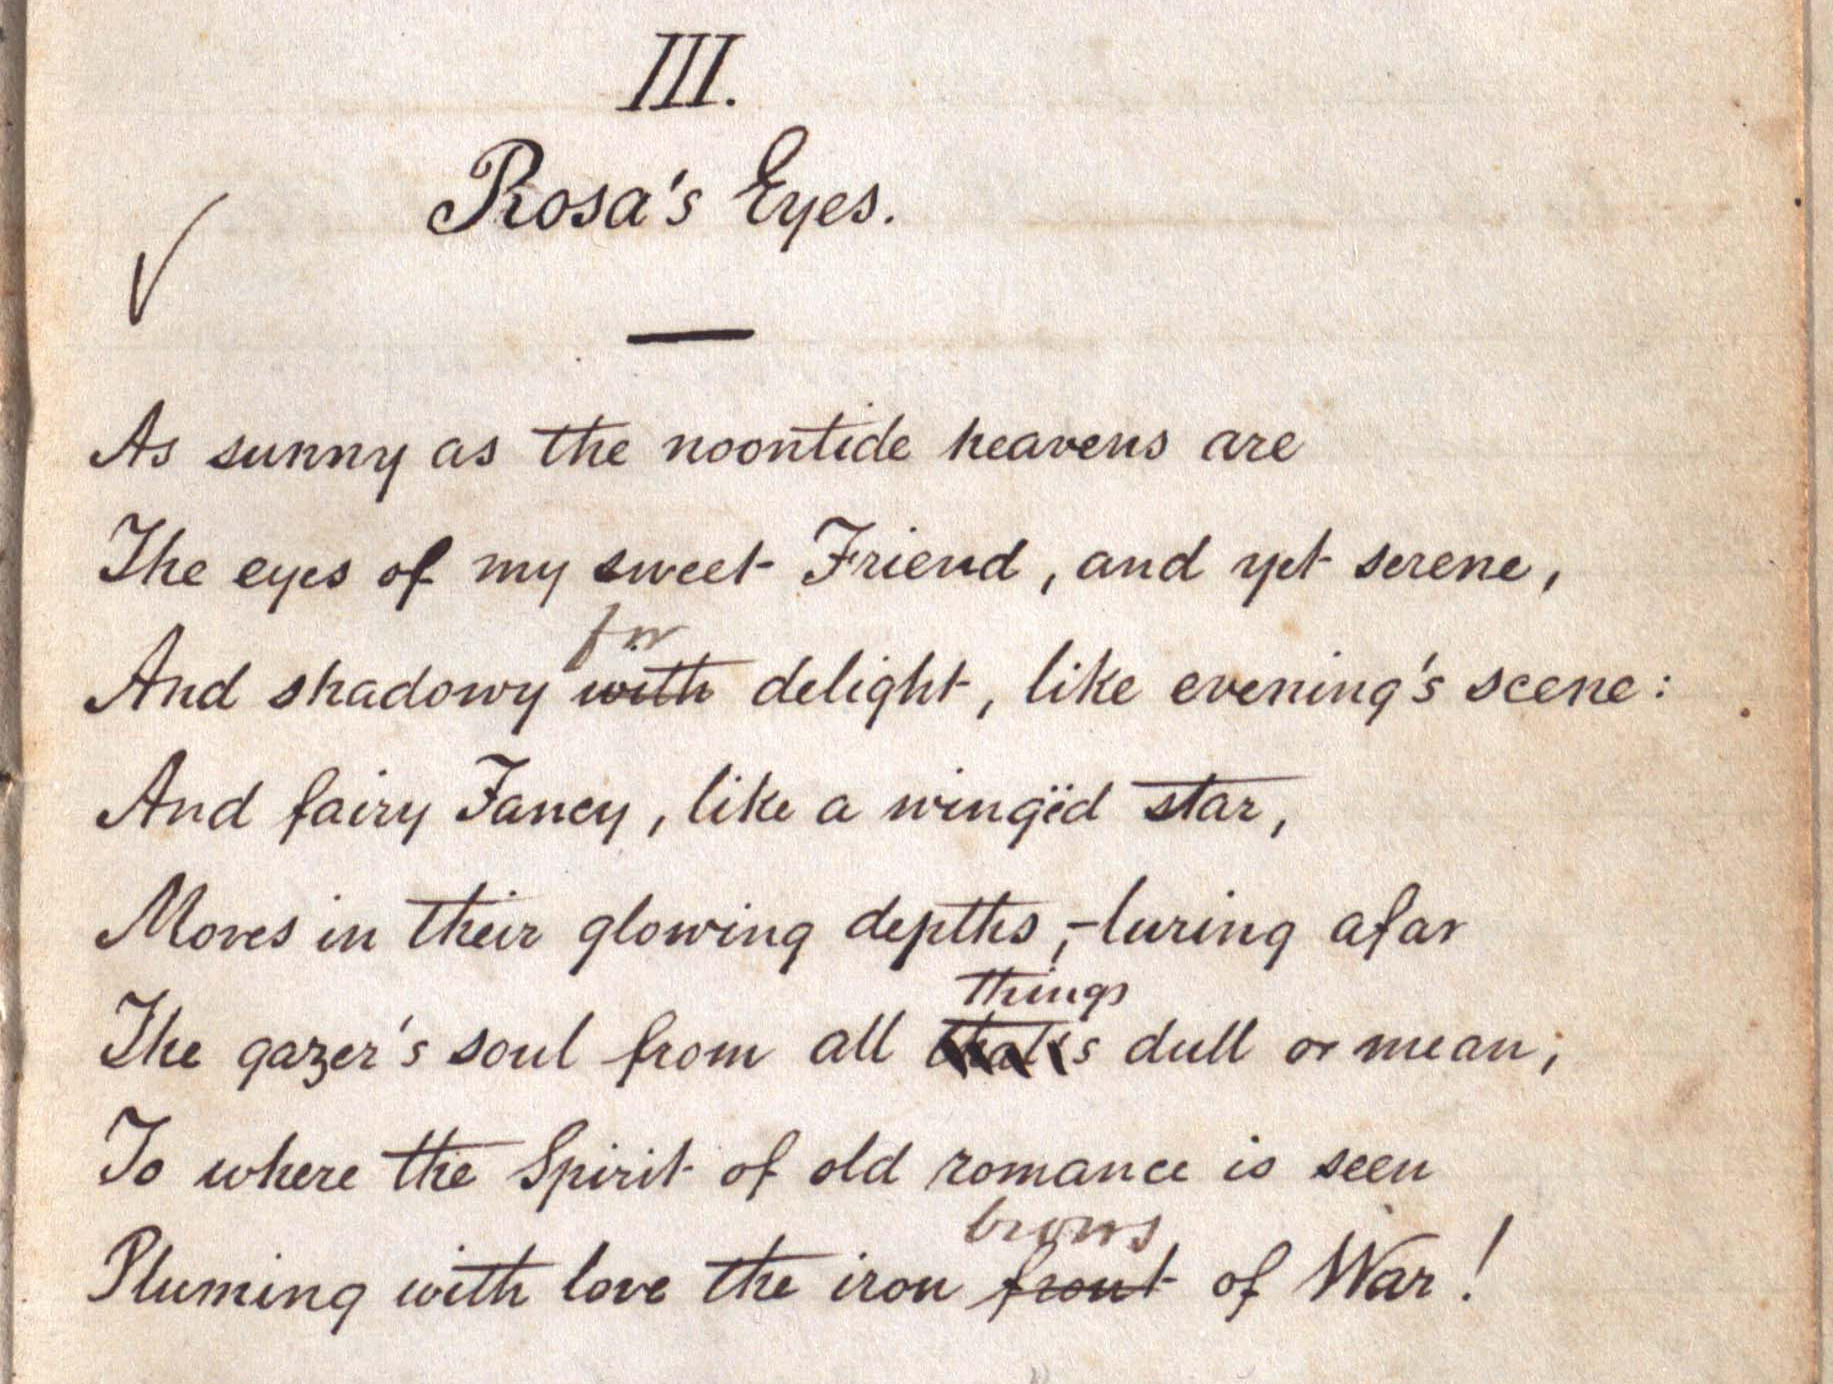 III.
Rosa's Eyes.
As sunny as the noontide heavens are
The eyes of my sweet Friend, and yet serene,
for
And shadowy with delight, like evening's scene:
And fairy Fancy, like a wingëd star,
Moves in their glowing depths,–luring afar
things
The gazer's soul from all that's dull or mean;
To where the Spirit of old romance is seen
brows
Pluming with love the iron front of War!